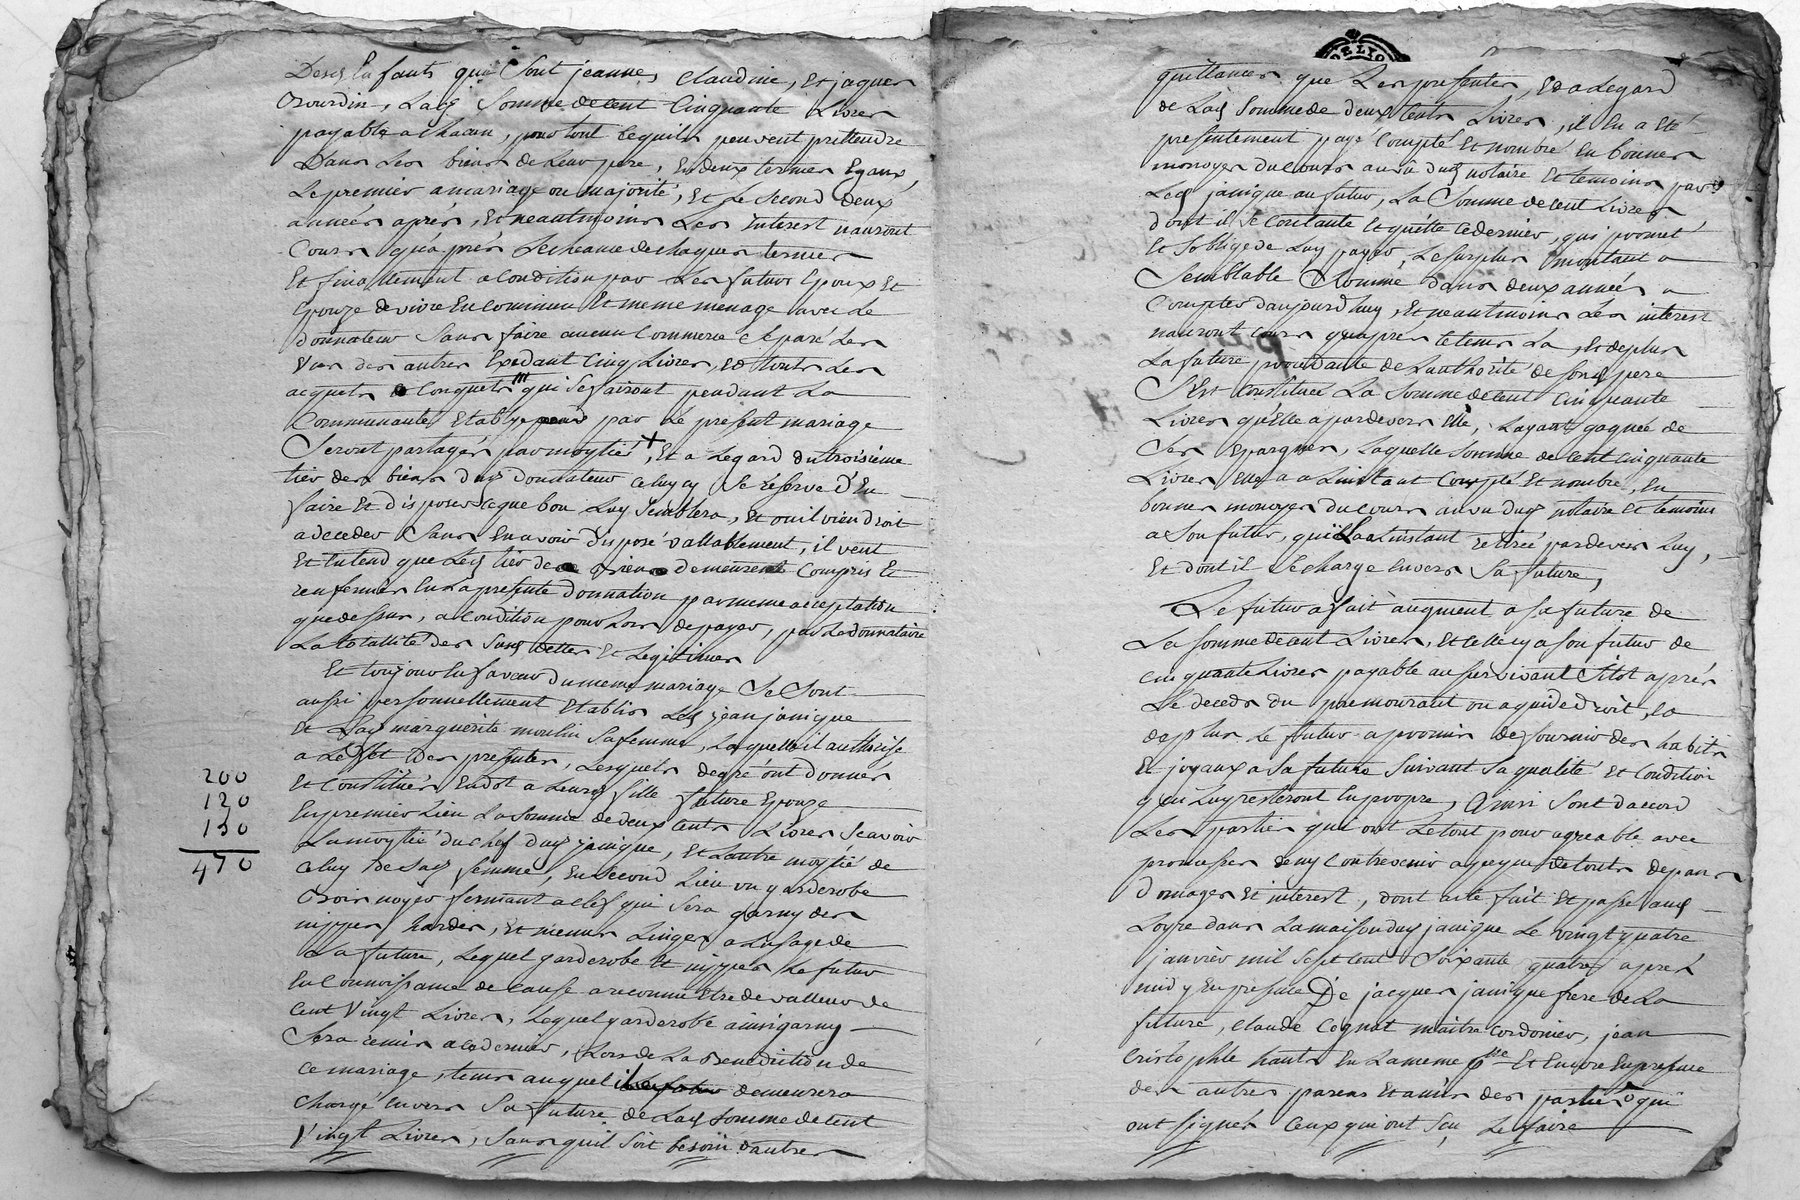 Desd. Enfants qui Sont jeanne, claudine, Et jaques
Bourdin, Lad. Somme de cent Cinquante Livres
payable a chacun, pour tout ce quils peuvent prettendre
Dans Les biens de Leur pere, En deux termes Egaux,
Le premier a mariage ou majorité, Et Le Second deux
années après, Et neantmoins Les Interest nauront
Cours qu'après Lecheance de chaques termes
Et finallement a Condition par Les futurs Epoux Et
Epouze de vivre En commun Et meme menage avec Le
donnateur Sans faire aucun Commerce Separé Les
Uns des autres Exedant Cinq Livres, Et touts Les
acquets Conquets qui Se fairont pendant La
Communauté Etablye par Le present mariage
Seront partagés par moytiés, Et a Legard du troisieme
tier des biens dud. Donnateur celuy cy Se réserve d'En
faire Et disposer ce que bon Luy Semblera, Et ou il viendroit
a deceder Sans En avoir disposé vallablement, il veut
Et Entend que Led. tier de Biens demeurent Compris Et
renfermés En La presente Donnation par meme acceptation
que dessus, a Condition pour Lors de payer, par Le donnataire
La totallité des Susd. dettes Et Legitimes
Et toujours En faveur du meme mariage Se Sont
aussi personnellement Etablis Led. jean janique
Et Lad. marguerite moulin Sa femme, Laquelle il authorise
a Leffet Des presentes, Lesquels de gré ont donnés
Et Constitués En dot a Leurd. fille future Epouze
En premier Lieu La Somme de deux Cents Livres Scavoir
La moytié du chef dud. janique, Et Lautre moytié de
Celuy de Sad. femme, En Second Lieu un garderobe
Bois noyer fermant a clef qui Sera garny des
nippes hardes, Et menus Linges a Lusage de
La future, Lequel garderobe Et nippes Le futur
En Connoissance de Cause a reconnu Etre de valleur de
Cent Vingt Livres, Lequel garderobe ainsi garny
Sera remis a ce dernier, Lors de La Benediction de
ce mariage, tems auquel il demeurera
Chargé Envers Sa future de Lad. Somme de Cent
Vingt Livres, Sans quil Soit besoin dautres
200
120
150
470
quittances que Les presentes, Et a Legard
de Lad. Somme de deux Cents Livres, il En a Eté
presentement payé Compté Et nombré En bonnes
monoyes du Cours au vû dud. notaire Et temoins par
Led. janique au futur, La Somme de Cent Livres
dont il Se Contente Et quitte Ce dernier, qui promet
Et Soblige de Luy payer, Le Surplus montant a
Semblable Somme dans deux années a
Compter daujourdhuy, Et neantmoins Les interest
nauront Cours qu'après ce tems La, Et de plus
La future procedante de Lauthorité de Sond. pere
S'Est Constituée La Somme de Cent Cinquante
Livres qu'Elle a par devers Elle, Layant gagnée de
Ses Epargnes, Laquelle Somme de Cent Cinquante
Livres Elle a a Linstant Compté Et nombré, En
bonnes monoyes du cours au vu dud. notaire Et temoins
a Son futur, qui La a Linstant retirée par devers Luy,
Et dont il Se charge Envers Sa future,
Le futur a fait augment a Sa future de
La Somme de Cent Livres, Et celle cy a Son futur de
Cinquante Livres payable au Survivant Sitot après
Le deceds du premourant ou a qui de droit, Et
de plus Le futur a promis de fournir des habits
Et joyaux a Sa future Suivant Sa qualité Et Condition
qui Luy resteront En propre, Ainsi Sont d'accord
Les parties qui ont Le tout pour agreable avec
promesses de ny Contrevenir a peyne de touts depans
domages Et interest, dont acte fait Et passé aud.
Loyre dans La maison dud. janique Le vingt quatre
janvier mil Sept Cent Soixante quatre après
midy En presence De jacques janique frere de La
future, Claude Cognat maitre cordonier, jean
Cristophle hauts En La meme Et Encore En presence
des autres parens Et amis des parties qui
ont Signés Ceux qui ont Seu Le faire